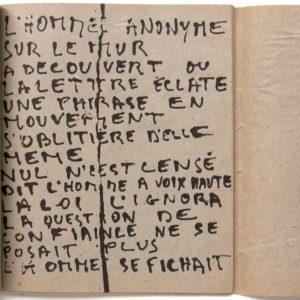 L'HOMME ANONYME
SUR LE MUR
A DECOUVERT OU
LA LETTRE ÉCLATE
UNE PHRASE EN
MOUVEMENT
S'OBLITIÈRE D'ELLE
MEME
NUL N'EST CENSÉ
DIT L'HOMME A VOIX HAUTE
LA LOI L'IGNORA
LA QUESTION DE
CONFIANCE NE SE
POSAIT PLUS
L'HOMME SE FICHAIT